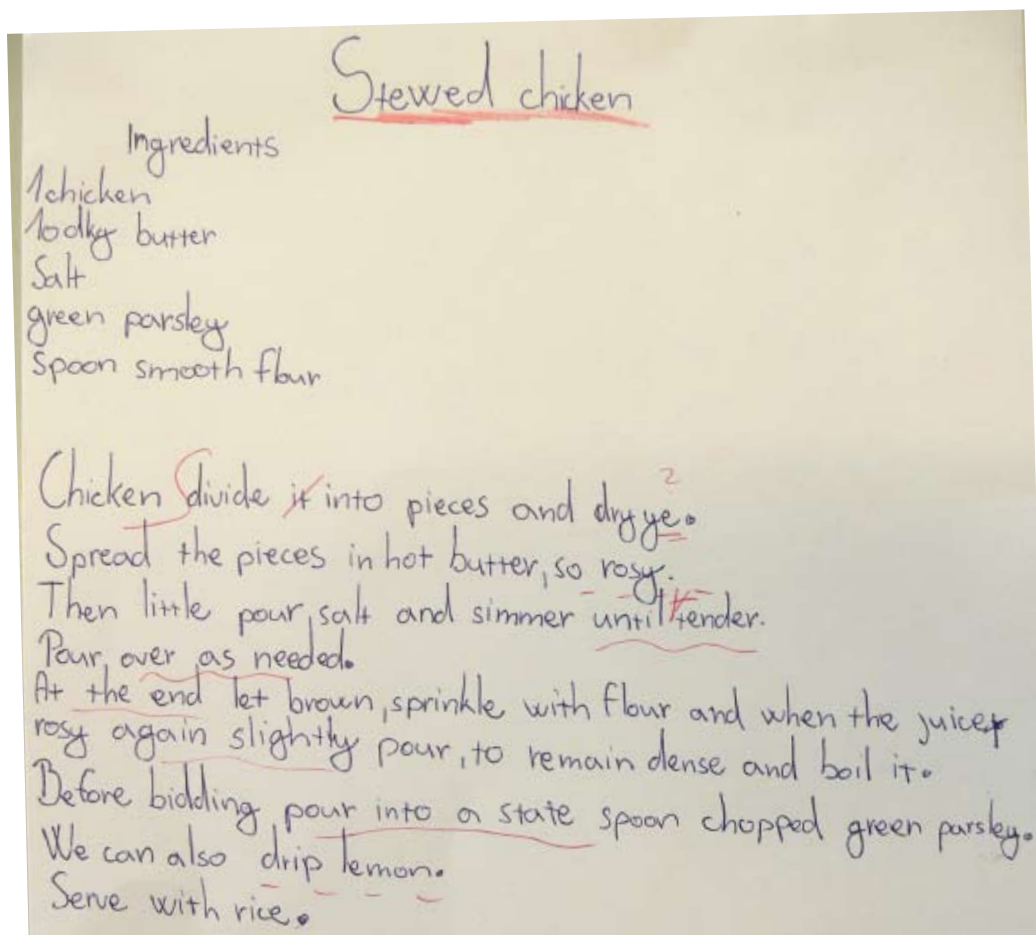 Stewed chicken
Ingredients
1chicken
10dkg butter
Salt
green parsley
spoon smooth flour
Chicken divide it into pieces and dry ye.
Spread the pieces in hot butter, so rosy.
Then little pour, salt and simmer until tender.
Pour over as needed.
At the end let brown, sprinkle with flour and when the juice
rosy again slightly pour, to remain dense and boil it.
Before bidding pour into a state spoon chopped green parsley.
We can also drip lemon.
Serve with rice.